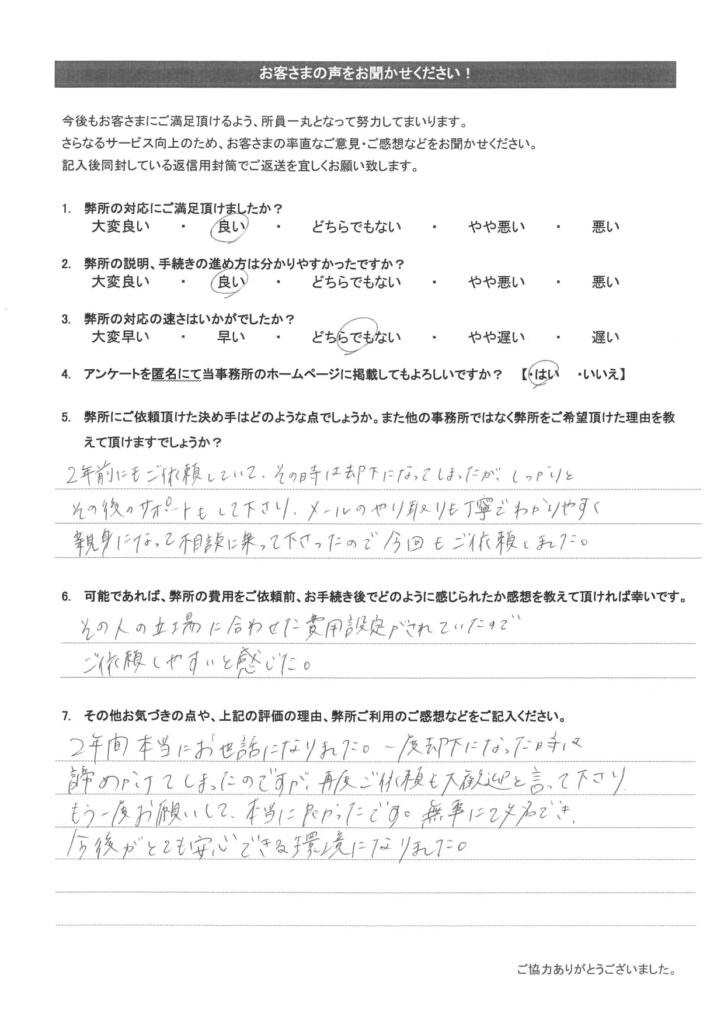 お客さまの声をお聞かせください！
今後もお客さまにご満足頂けるよう、所員一丸となって努力してまいります。
さらなるサービス向上のため、お客さまの率直なご意見・ご感想などをお聞かせください。
記入後同封している返信用封筒でご返送を宜しくお願い致します。
1. 弊所の対応にご満足頂けましたか？
大変良い ・ 良い ・ どちらでもない ・ やや悪い ・ 悪い
2. 弊所の説明、手続きの進め方は分かりやすかったですか？
大変良い ・ 良い ・ どちらでもない ・ やや悪い ・ 悪い
3. 弊所の対応の速さはいかがでしたか？
大変早い ・ 早い ・ どちらでもない ・ やや遅い ・ 遅い
4. アンケートを匿名にて当事務所のホームページに掲載してもよろしいですか？ 【・はい ・いいえ】
5. 弊所にご依頼頂けた決め手はどのような点でしょうか。また他の事務所ではなく弊所をご希望頂けた理由を教
えて頂けますでしょうか？
2年前にもご依頼していて、その時は却下になってしまったが、しっかりと
その後のサポートもして下さり、メールのやり取りも丁寧でわかりやすく
親身になって相談に乗って下さったので今回もご依頼しました。
6. 可能であれば、弊所の費用をご依頼前、お手続き後でどのように感じられたか感想を教えて頂ければ幸いです。
その人の立場に合わせた費用設定がされていたので
ご依頼しやすいと感じた。
7. その他お気づきの点や、上記の評価の理由、弊所ご利用のご感想などをご記入ください。
2年間本当にお世話になりました。一度却下になった時は
諦めかけてしまったのですが、再度ご依頼も大歓迎と言って下さり
もう一度お願いして、本当に良かったです。無事に改名でき、
今後がとても安心できる環境になりました。
ご協力ありがとうございました。